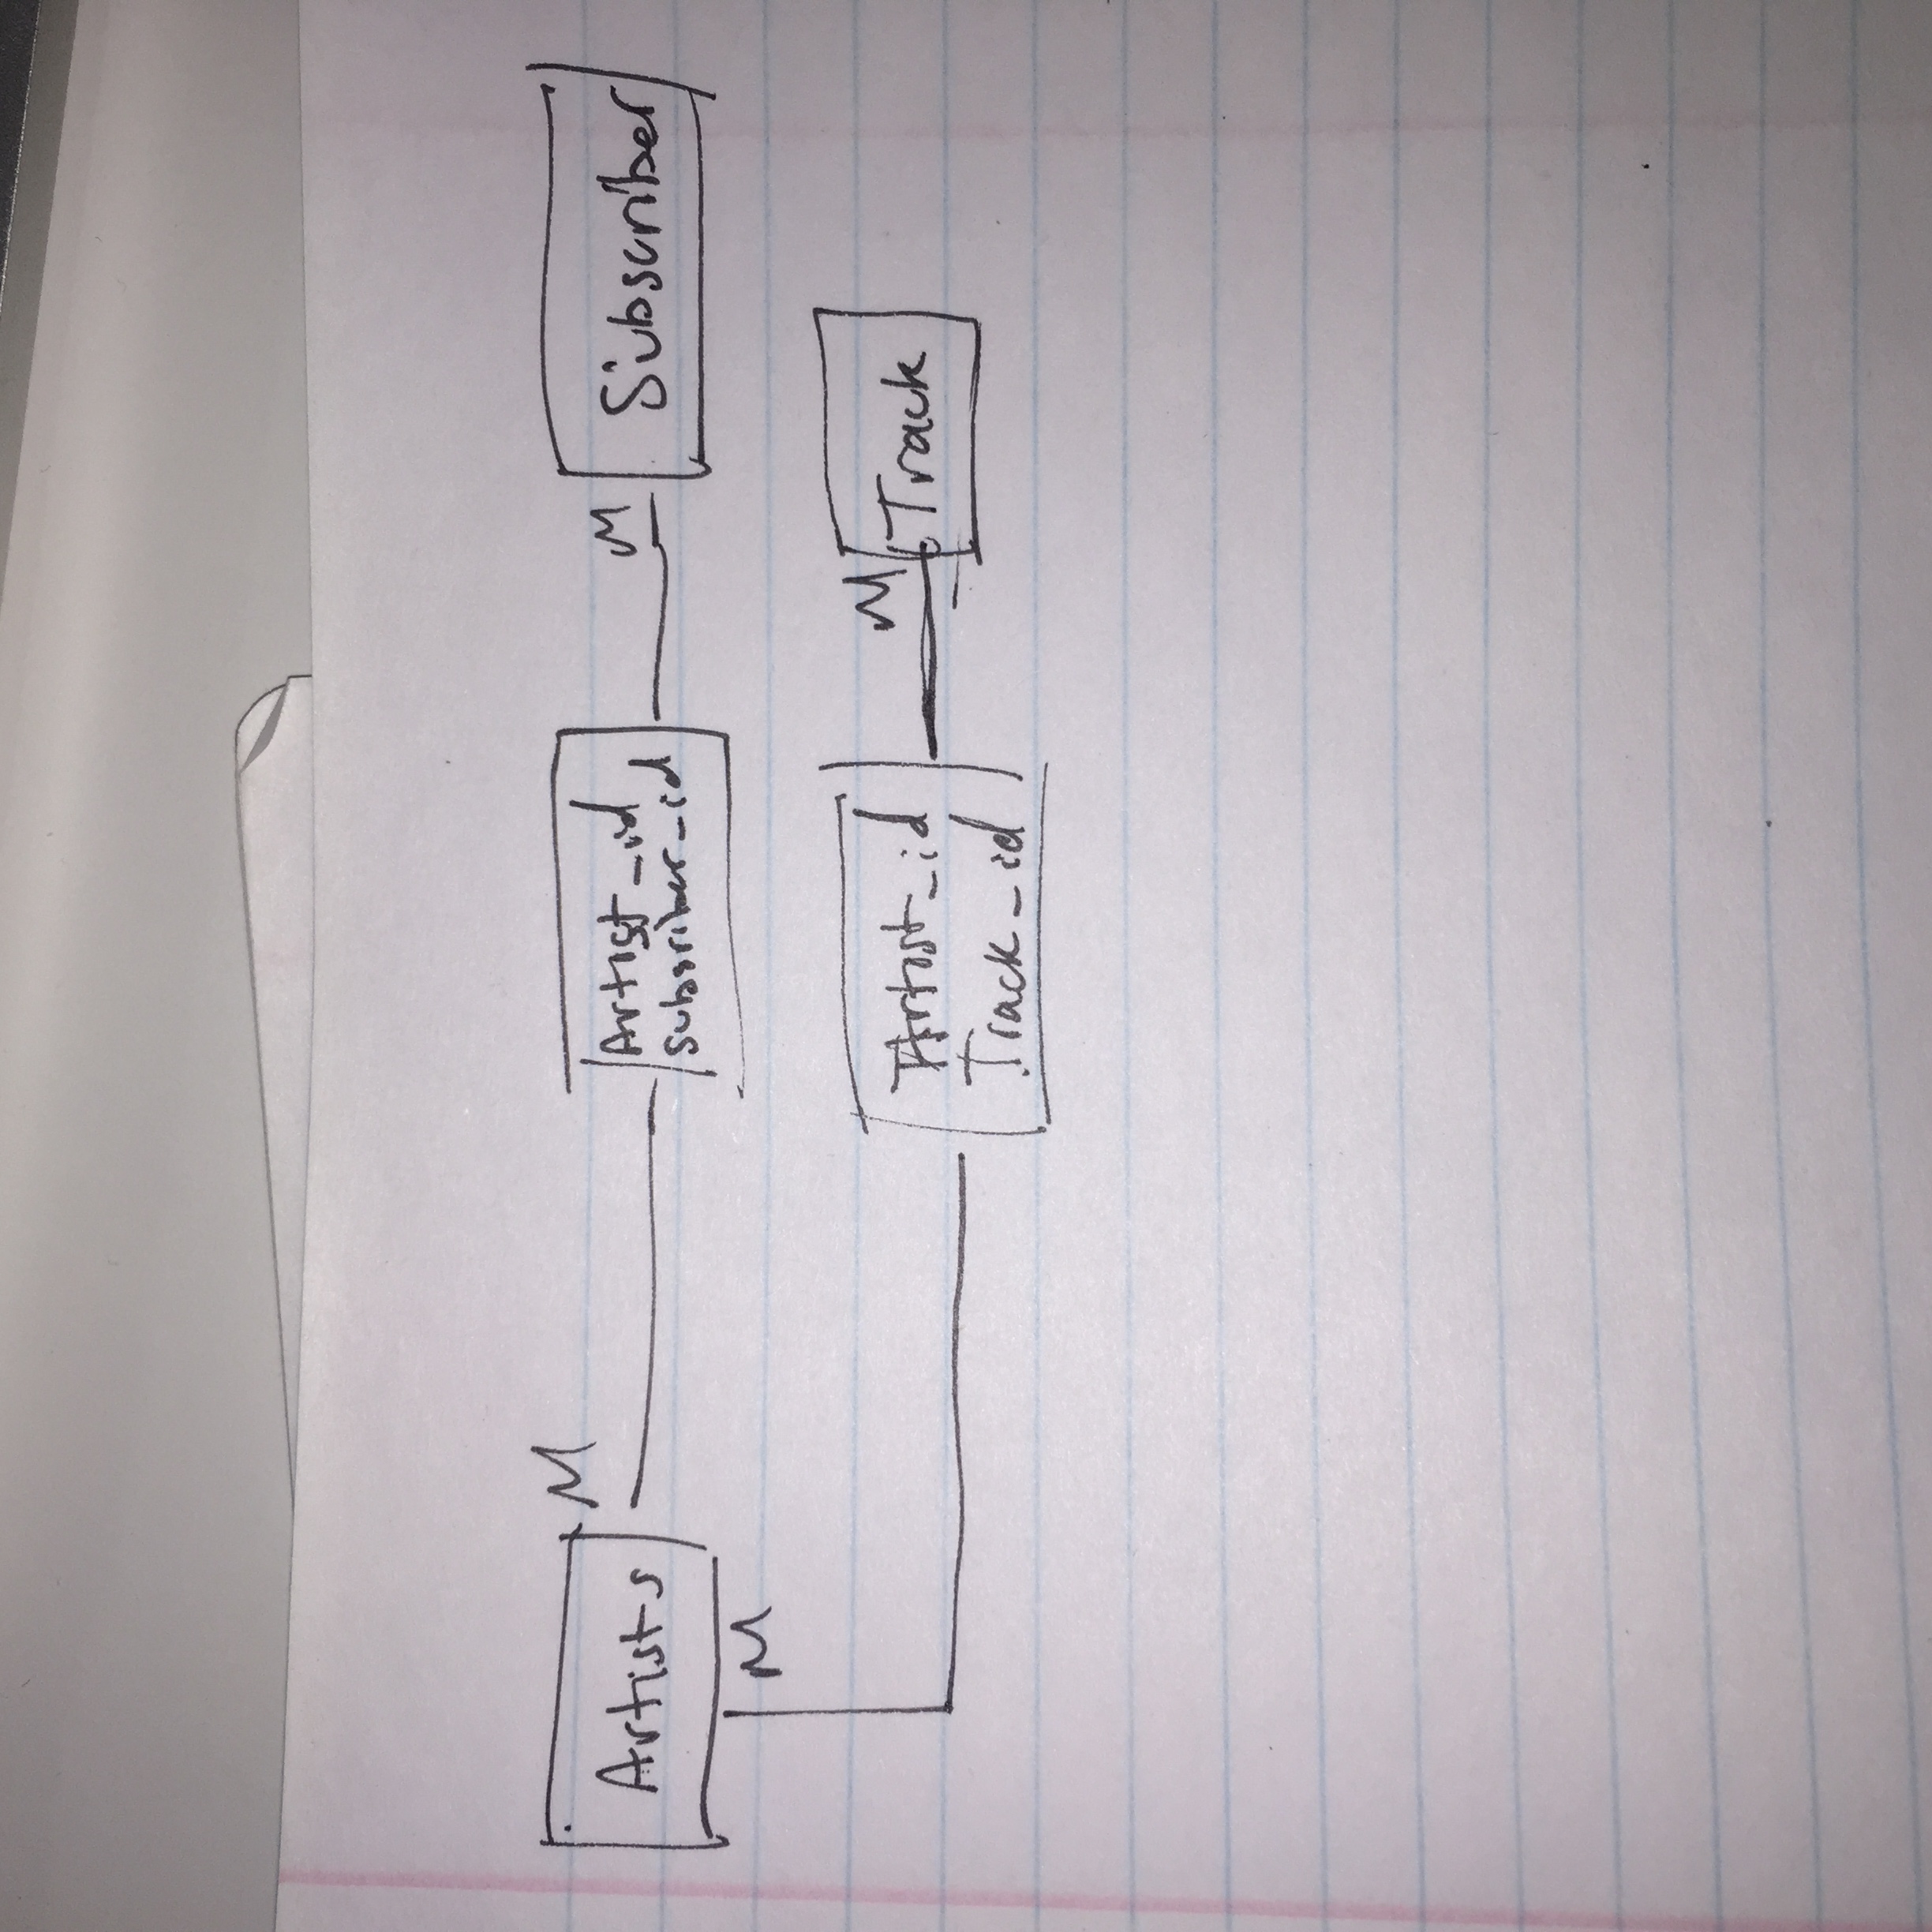 M
Artists
Artist_id
subscriber_id
M
Subscriber
M
Artist_id
Track_id
M
Track